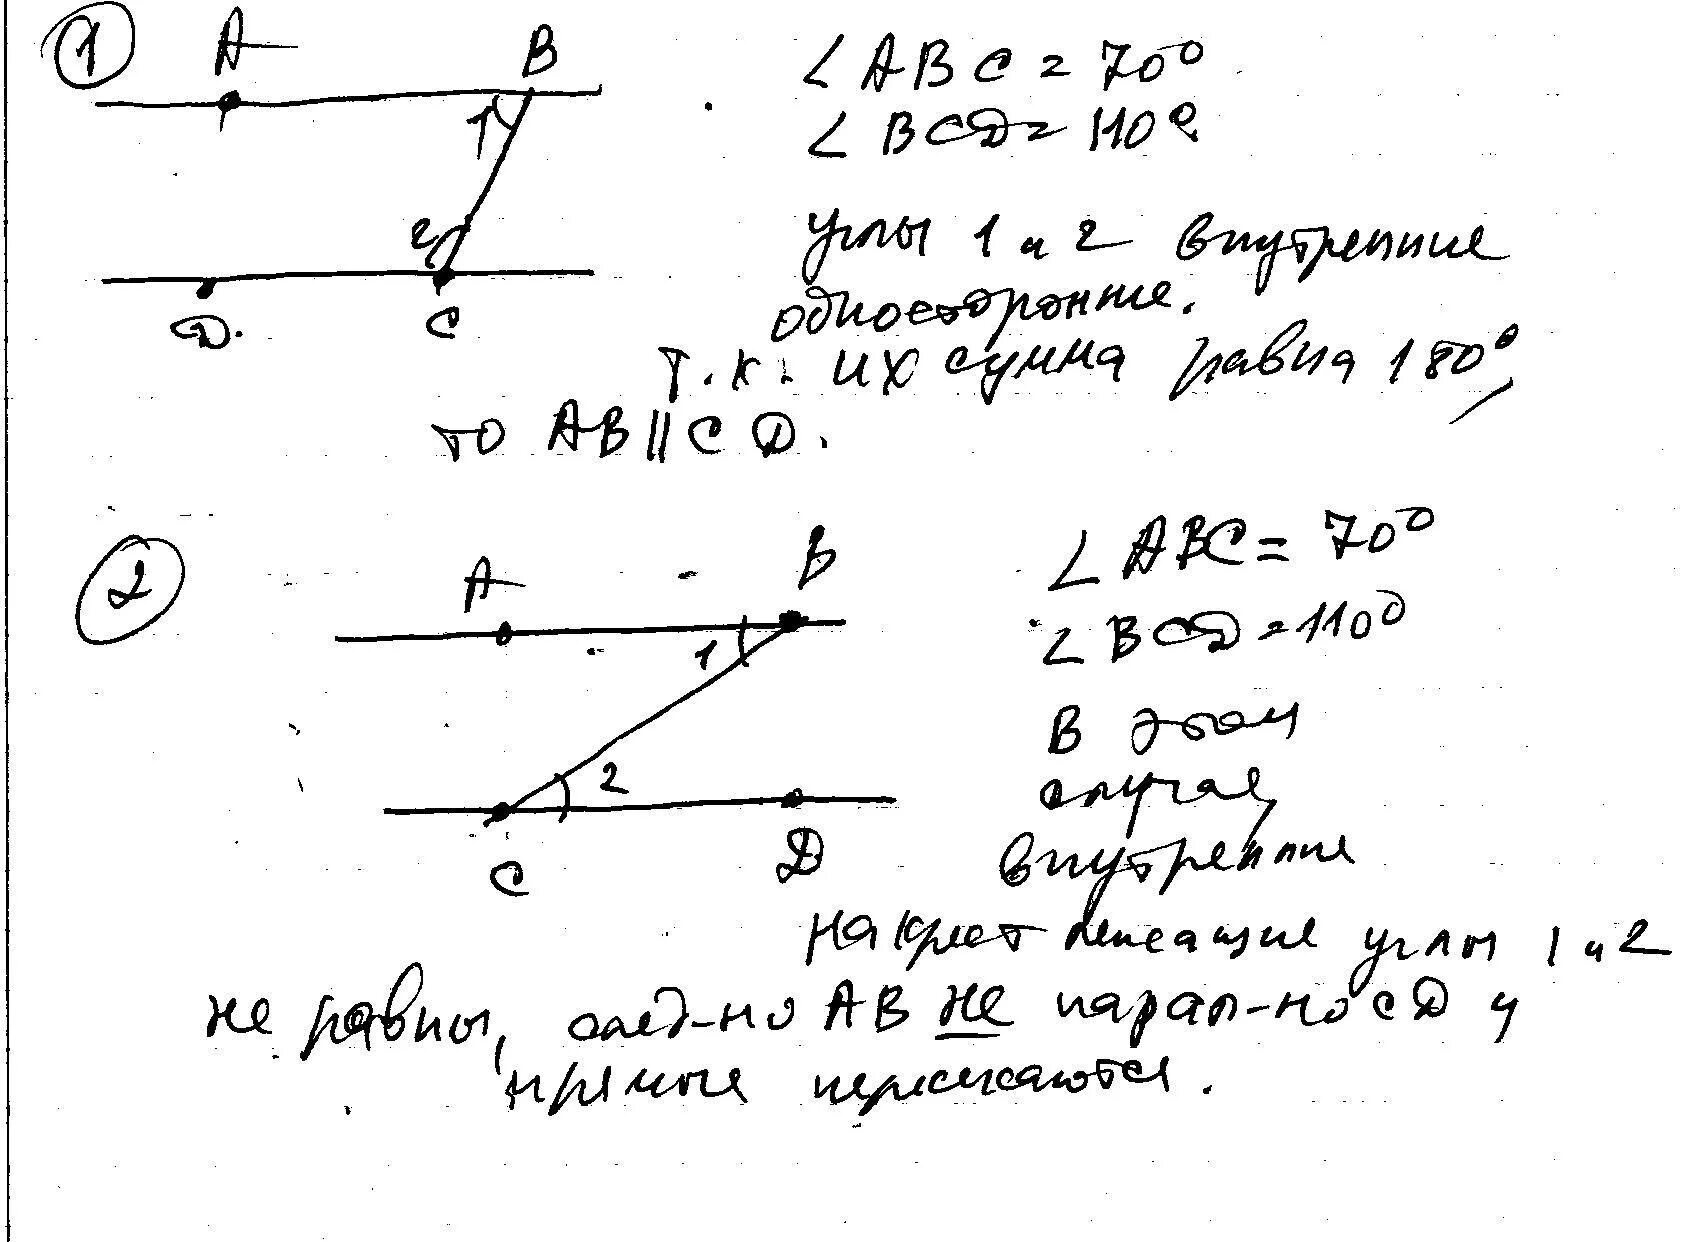 1
A B
1
2
D. C
∠ABC = 70°
∠BCD = 110°
углы 1 и 2 внутренние
односторонние.
т.к. их сумма равна 180°,
то AB || CD.
2
A B
1
2
C D
∠ABC = 70°
∠BCD = 110°
В этом
случае,
внутренние
накрест лежащие углы 1 и 2
не равны, след-но AB не парал-но CD и
прямые пересекаются.